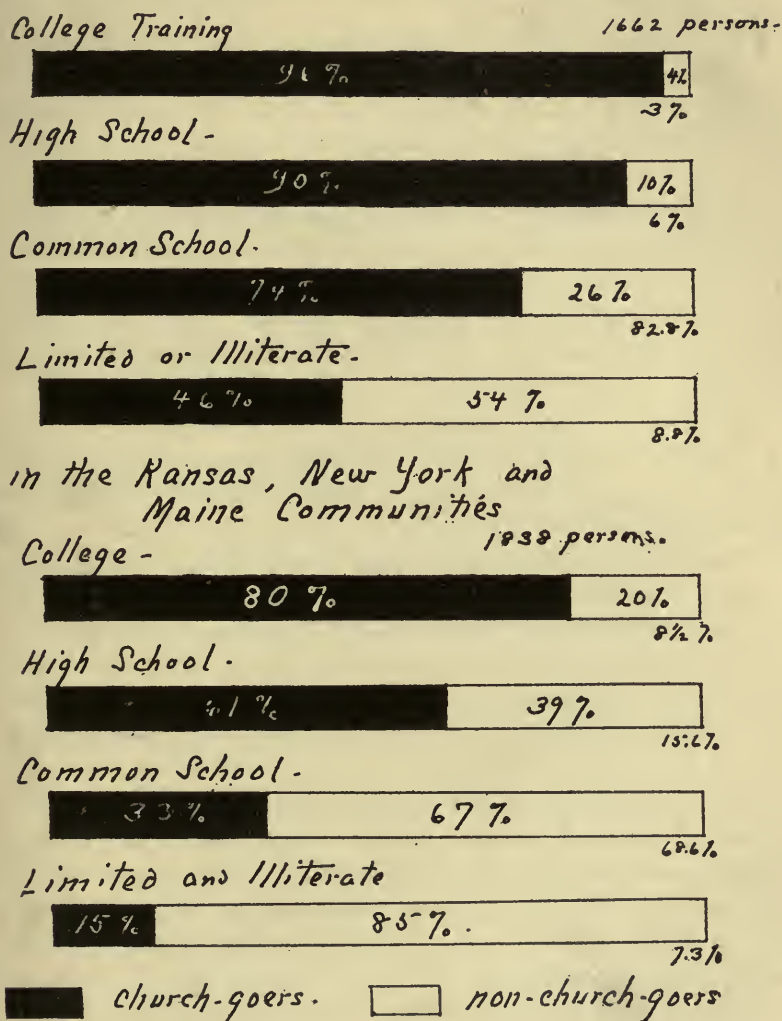 College Training 1662 persons.
96% 4%
3%
High School -
90% 10%
6%
Common School.
74% 26%
82.8%
Limited or Illiterate -
46% 54%
8.8%
in the Kansas, New York and
Maine Communities
1838 persons.
College -
80% 20%
8½%
High School.
61% 39%
15.6%
Common School -
33% 67%
68.6%
Limited and Illiterate
15% 85%.
7.3%
church-goers. non-church-goers